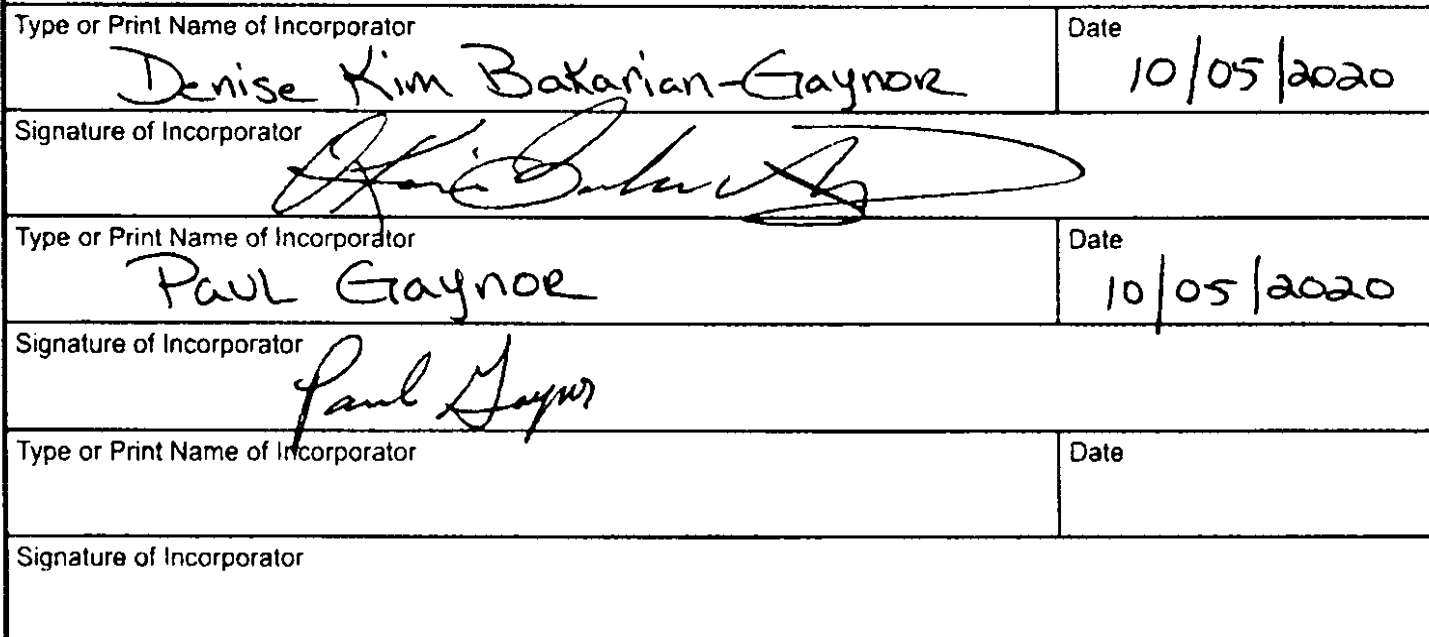 Type or Print Name of Incorporator
Date
Denise Kim Bakarian-Gaynor
10/05/2020
Signature of Incorporator
Type or Print Name of Incorporator
Date
Paul Gaynor
10/05/2020
Signature of Incorporator
Paul Gaynor
Type or Print Name of Incorporator
Date
Signature of Incorporator